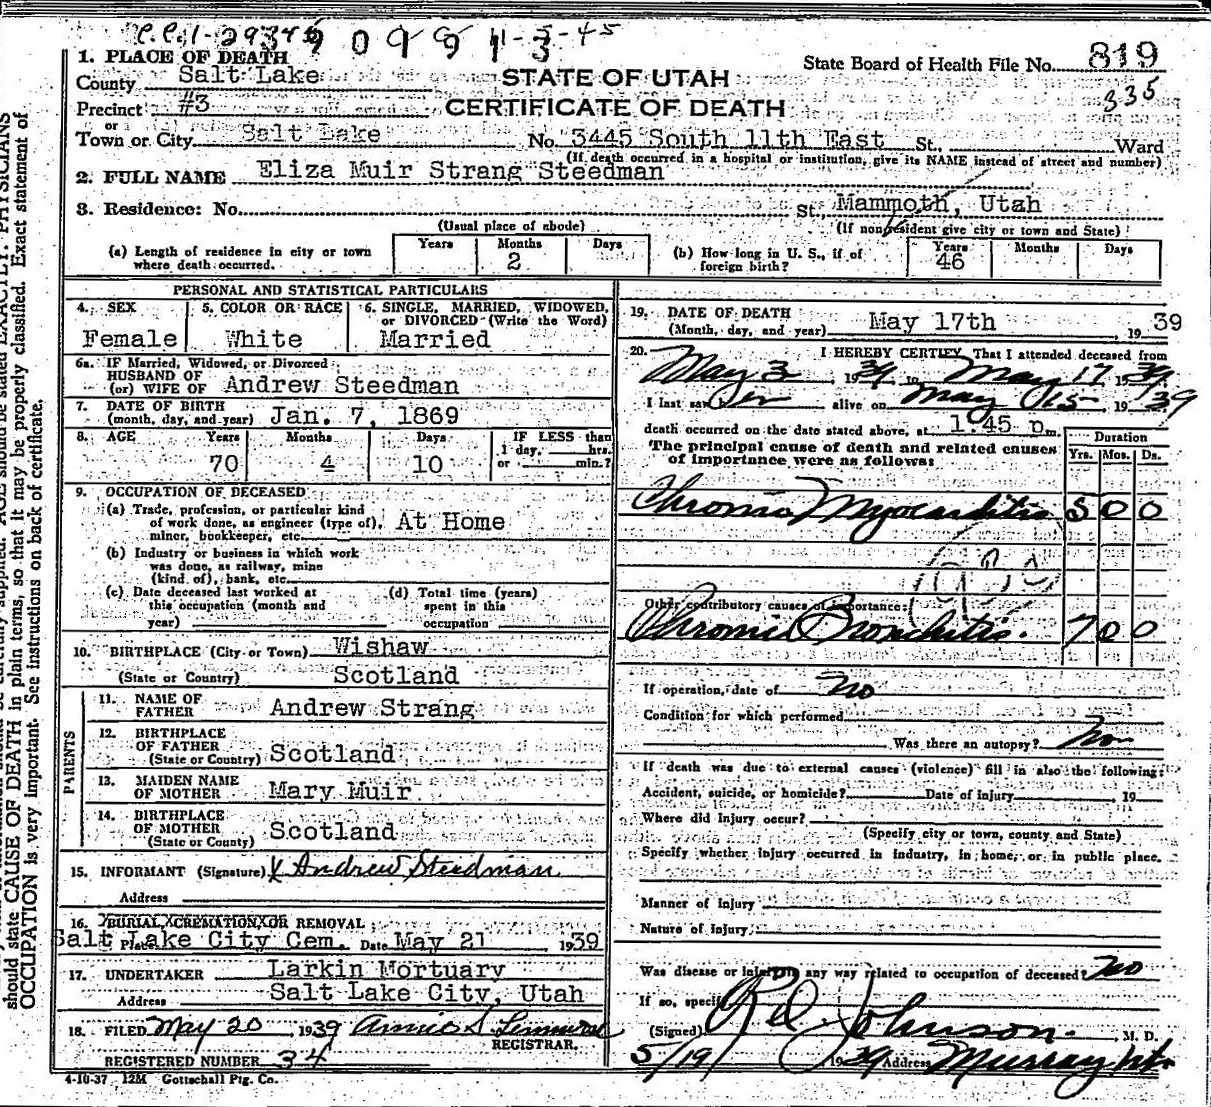 819
335
State Board of Health File No.
STATE OF UTAH
CERTIFICATE OF DEATH
1. PLACE OF DEATH
County Salt Lake
Precinct #3
Town or City Salt Lake No. 3445 South 11th East St., Ward
(If death occurred in a hospital or institution, give its NAME instead of street and number)
2. FULL NAME Eliza Muir Strang Steedman
3. Residence: No. St., Mammoth, Utah
(Usual place of abode) (If nonresident give city or town and State)
(a) Length of residence in city or town where death occurred. Years Months 2 Days
(b) How long in U. S., if of foreign birth? Years 46 Months Days
PERSONAL AND STATISTICAL PARTICULARS
4. SEX 5. COLOR OR RACE 6. SINGLE, MARRIED, WIDOWED, or DIVORCED (Write the Word)
Female White Married
6a. IF Married, Widowed, or Divorced
HUSBAND OF
(or) WIFE OF Andrew Steedman
7. DATE OF BIRTH
(month, day, and year) Jan. 7, 1869
8. AGE Years Months Days IF LESS than
1 day, hrs.
70 4 10 or min.?
9. OCCUPATION OF DECEASED
(a) Trade, profession, or particular kind
of work done, as engineer (type of), At Home
miner, bookkeeper, etc.
(b) Industry or business in which work
was done, as railway, mine
(kind of), bank, etc.
(c) Date deceased last worked at this occupation (month and year)
(d) Total time (years) spent in this occupation
10. BIRTHPLACE (City or Town) Wishaw
(State or Country) Scotland
PARENTS
11. NAME OF
FATHER Andrew Strang
12. BIRTHPLACE
OF FATHER
(State or Country) Scotland
13. MAIDEN NAME
OF MOTHER Mary Muir
14. BIRTHPLACE
OF MOTHER Scotland
(State or County)
15. INFORMANT (Signature) X Andrew Steedman
Address
16. BURIAL, CREMATION, OR REMOVAL
Place Salt Lake City Cem. Date May 21, 1939
17. UNDERTAKER Larkin Mortuary
Address Salt Lake City, Utah
18. FILED May 20, 1939 Annie S.
REGISTRAR.
REGISTERED NUMBER 34
4-10-37 12M Gottschall Ptg. Co.
19. DATE OF DEATH
(Month, day, and year) May 17th 1939
20. I HEREBY CERTIFY, That I attended deceased from
May 3, 1939, to May 17, 1939
I last saw her alive on May 15, 1939
death occurred on the date stated above, at 1:45 p.m.
The principal cause of death and related causes
of importance were as follows:
Duration
Yrs. Mos. Ds.
Chronic Myocarditis 5 0 0
Other contributory causes of importance:
Chronic Bronchitis. 7 0 0
If operation, date of no
Condition for which performed
Was there an autopsy? No
If death was due to external causes (violence) fill in also the following:
Accident, suicide, or homicide? Date of injury , 19
Where did Injury occur?
(Specify city or town, county and State)
Specify whether injury occurred in industry, in home, or in public place.
Manner of Injury
Nature of Injury
Was disease or injury in any way related to occupation of deceased? No
If so, specify
(Signed) Johnson. , M. D.
5/19 1939 Address Murray Ut.
OCCUPATION is very important. See instructions on back of certificate.
should state CAUSE OF DEATH in plain terms, so that it may be properly classified. Exact statement of